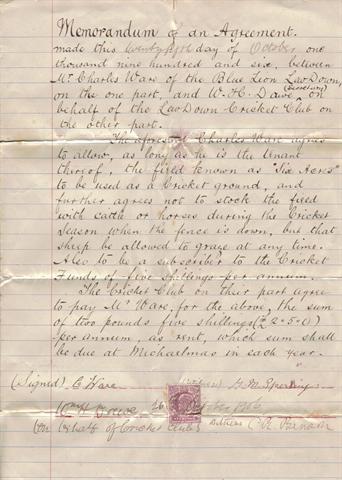 Memorandum of an Agreement.
made this twentyfifth day of October one
thousand nine hundred and six, between
Mr Charles Ware of the Blue Lion LawDown,
on the one part, and W. H. Dawe (Secretary) on
behalf of the LawDown Cricket Club on
the other part.
The aforesaid Charles Ware agrees
to allow, as long as he is the tenant
thereof, the field known as "Six Acres"
to be used as a Cricket ground, and
further agrees not to stock the field
with cattle or horses during the Cricket
Season when the fence is down, but that
sheep be allowed to graze at any time.
Also to be a subscriber to the Cricket
Funds of five shillings per annum.
The Cricket Club on their part agree
to pay Mr Ware, for the above, the sum
of two pounds five shillings (£2-5-0)
per annum, as rent, which sum shall
be due at Michaelmas in each year.
(Signed) C Ware
26 October 1906
On behalf of Cricket Club